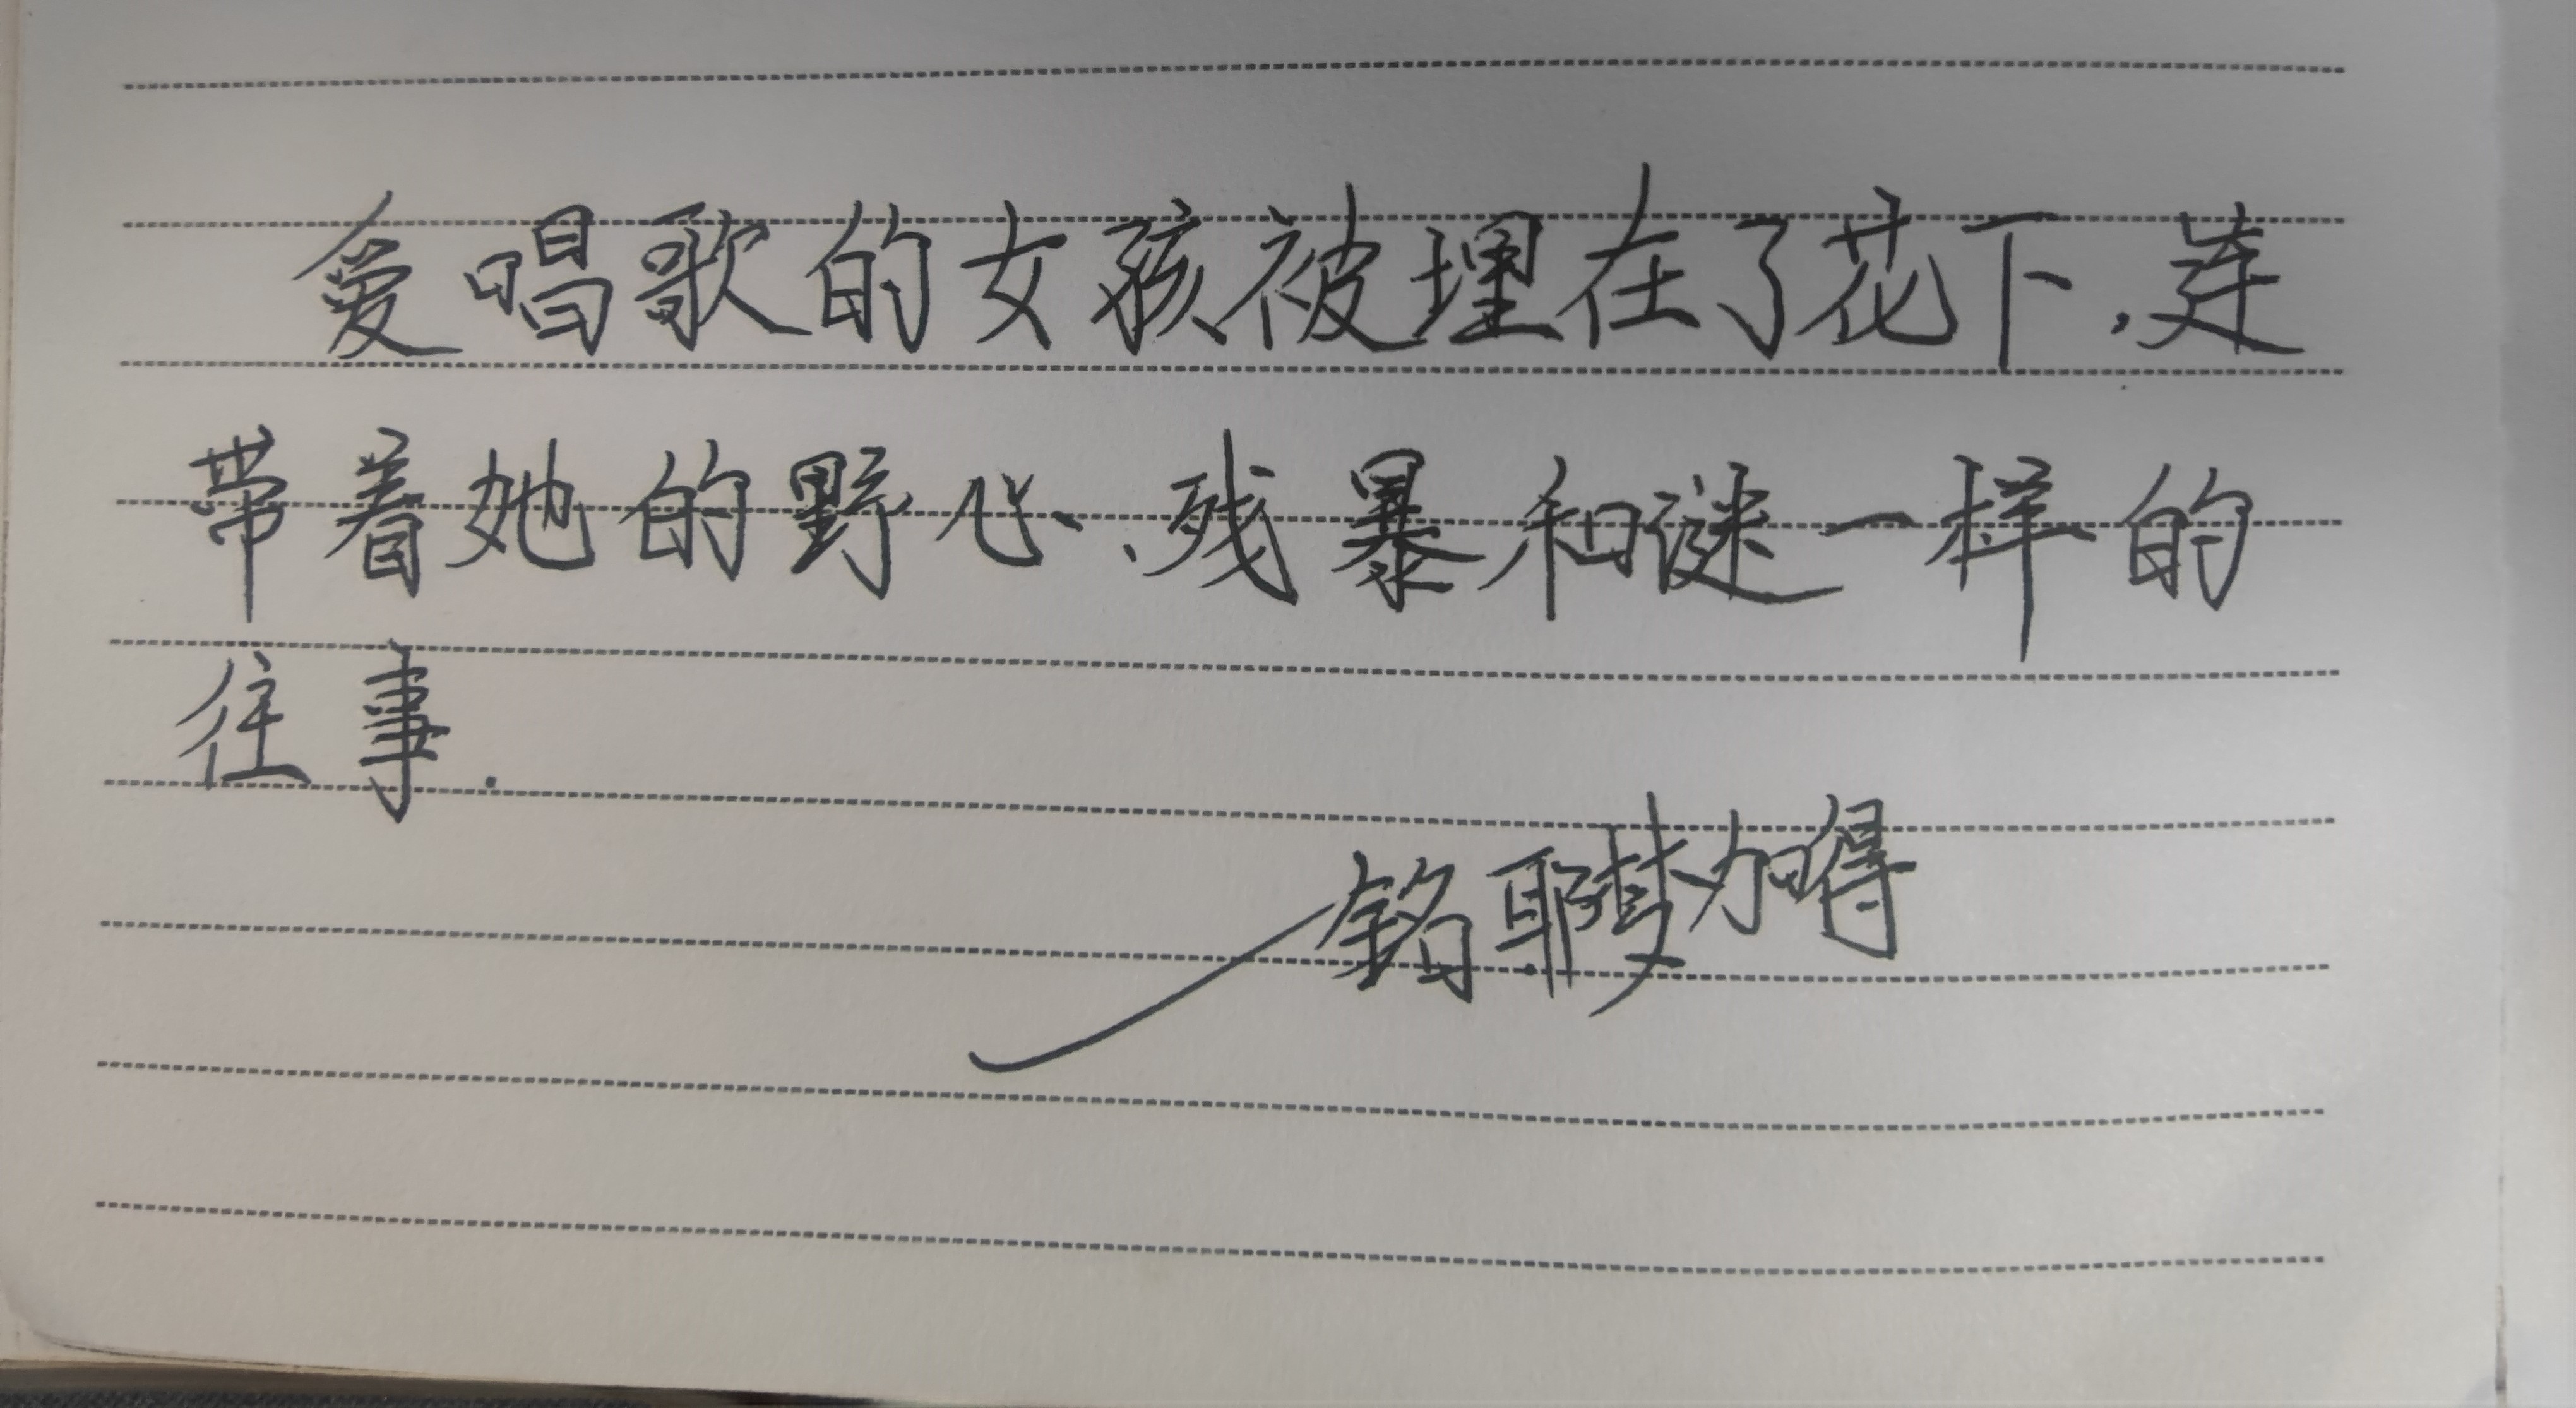 爱唱歌的女孩被埋在了花下,连
带着她的野心、残暴和谜一样的
往事.